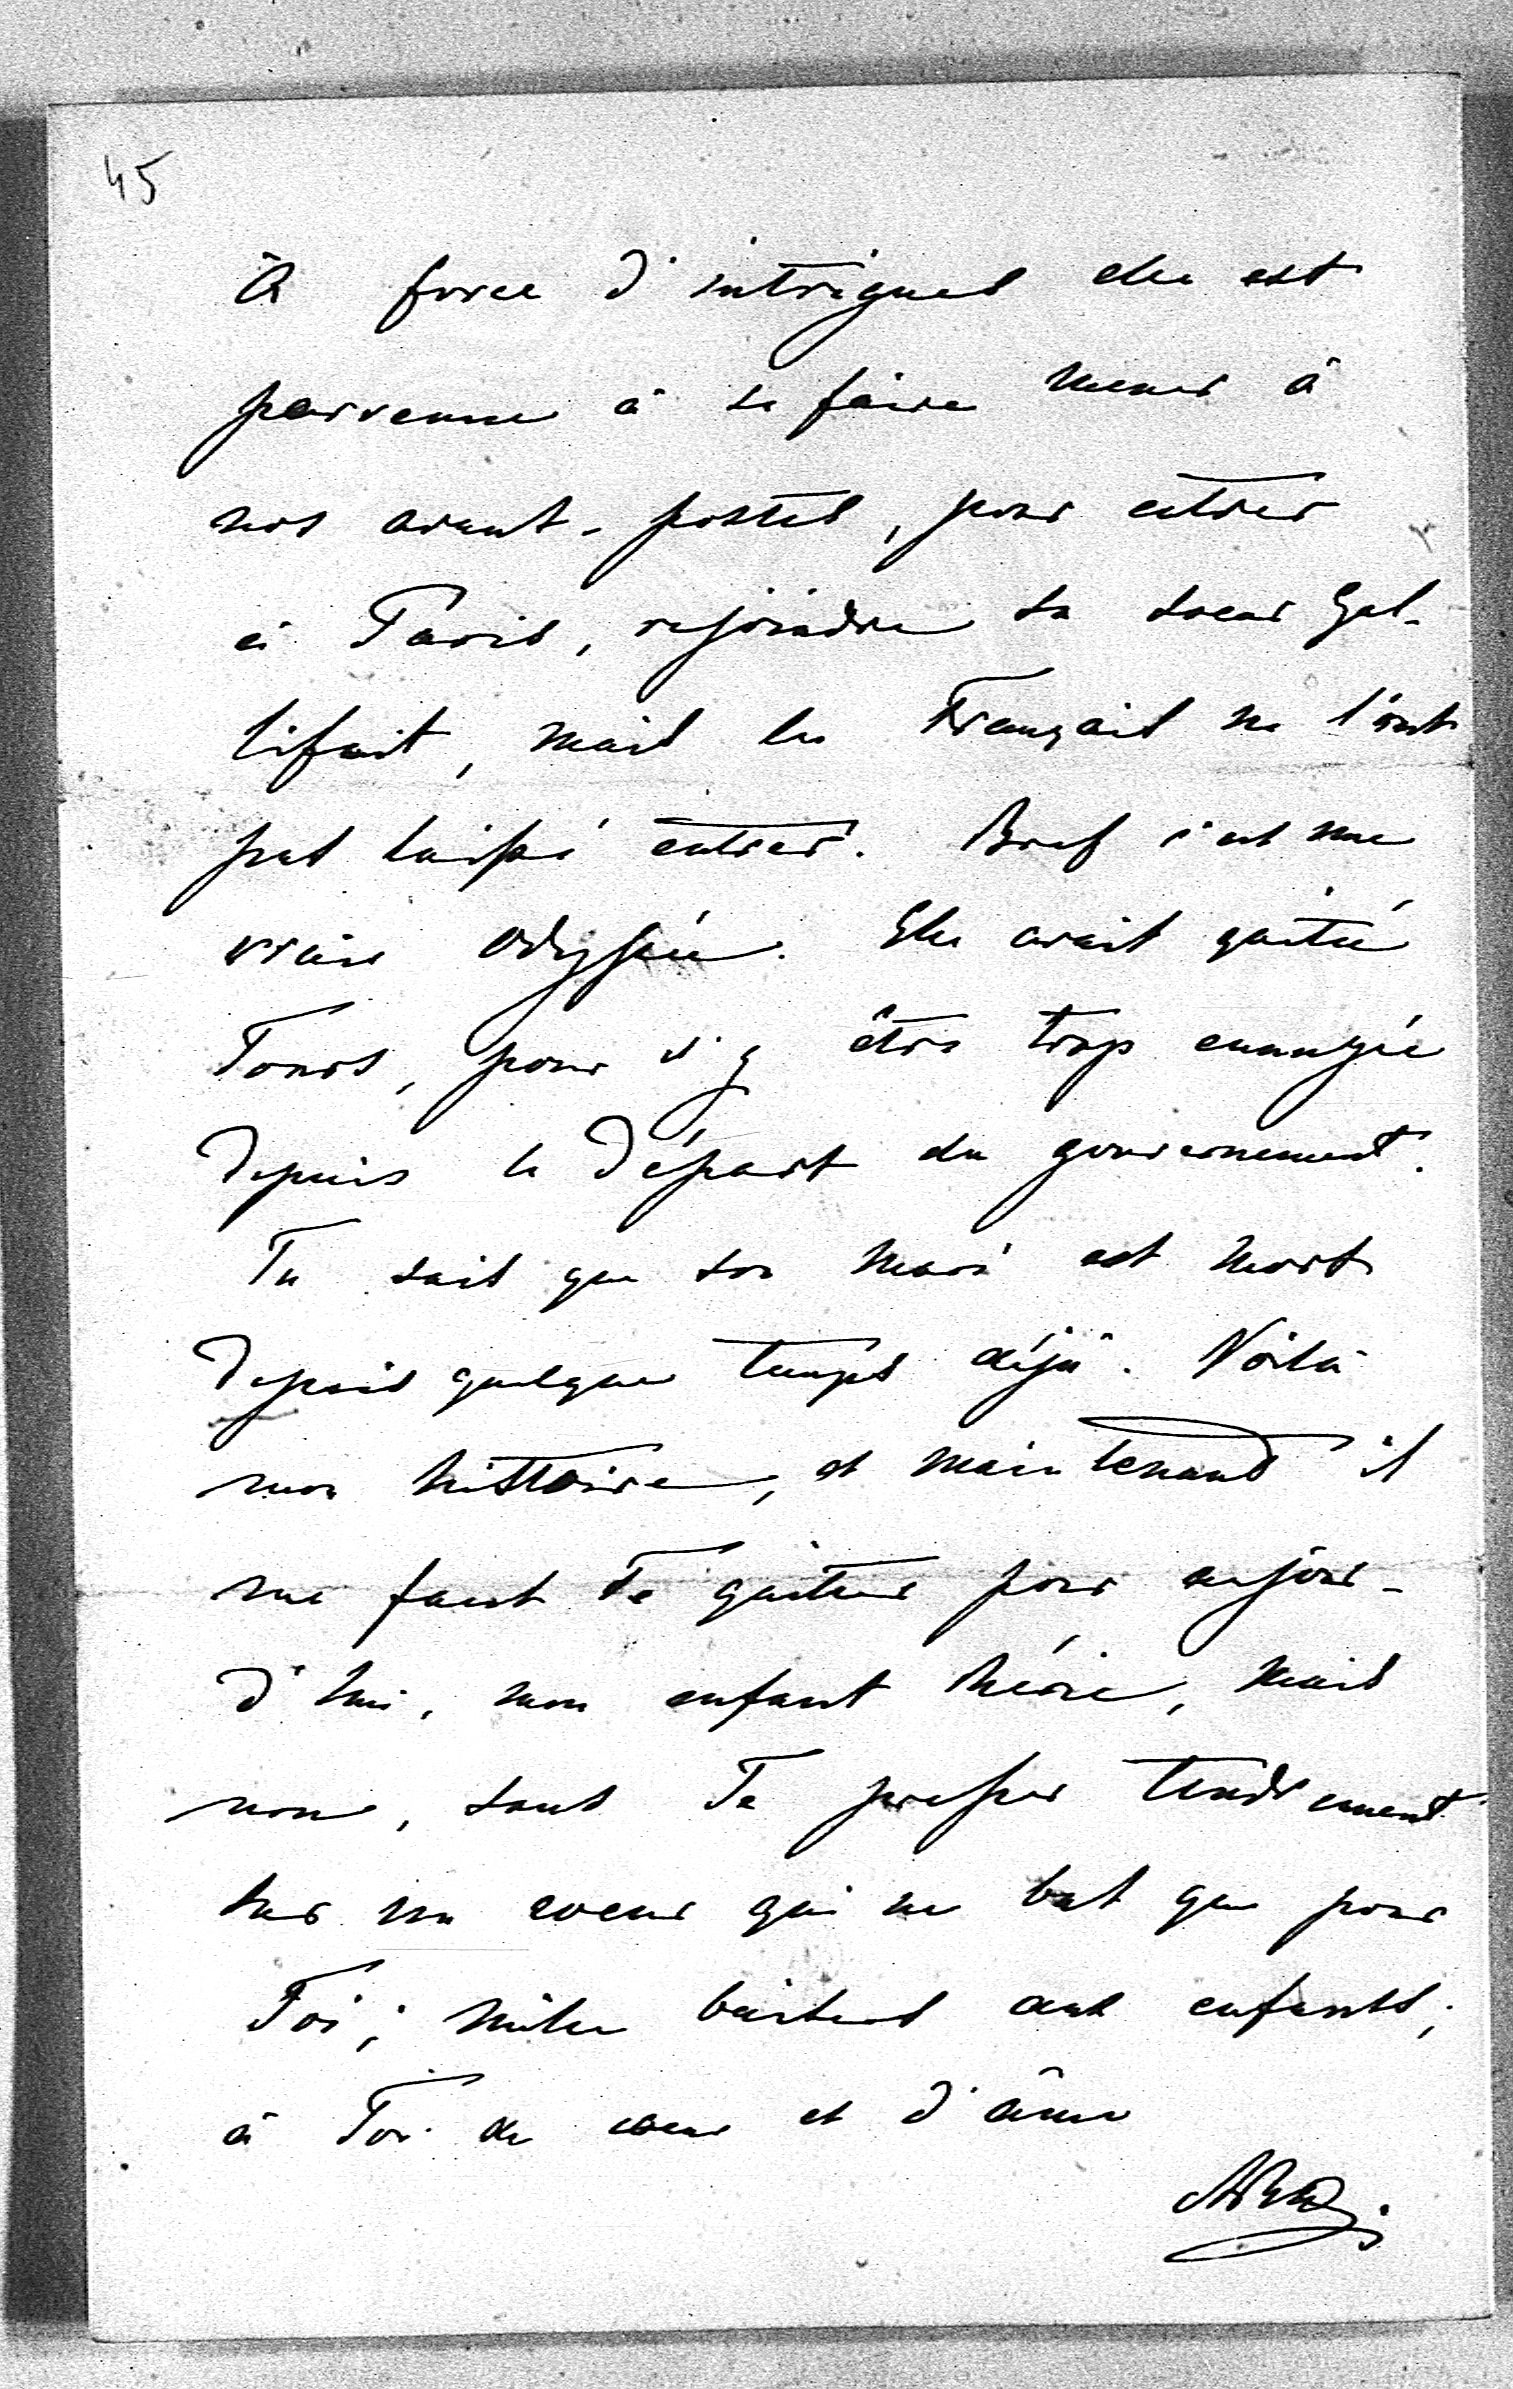 45
À force d'intrigues elle est
parvenue à se faire mener à
nos avant-postes, pour entrer
à Paris, rejoindre sa soeur Gal-
lifait, mais les Français ne l'ont
pas laissé entrer. Bref c'est une
vraie odyssée. Elle avait quitté
Tours, pour s'y être trop ennuyée
depuis le départ du gouvernement.
Tu sais que son mari est mort
depuis quelque temps déjà. Voilà
mon histoire, et maintenant il
me faut Te quitter pour aujour-
d'hui, mon enfant chérie, mais
non, sans Te presser tendrement
sur un coeur qui ne bat que pour
Toi; mille baisers aux enfants;
à Toi de coeur et d'âme